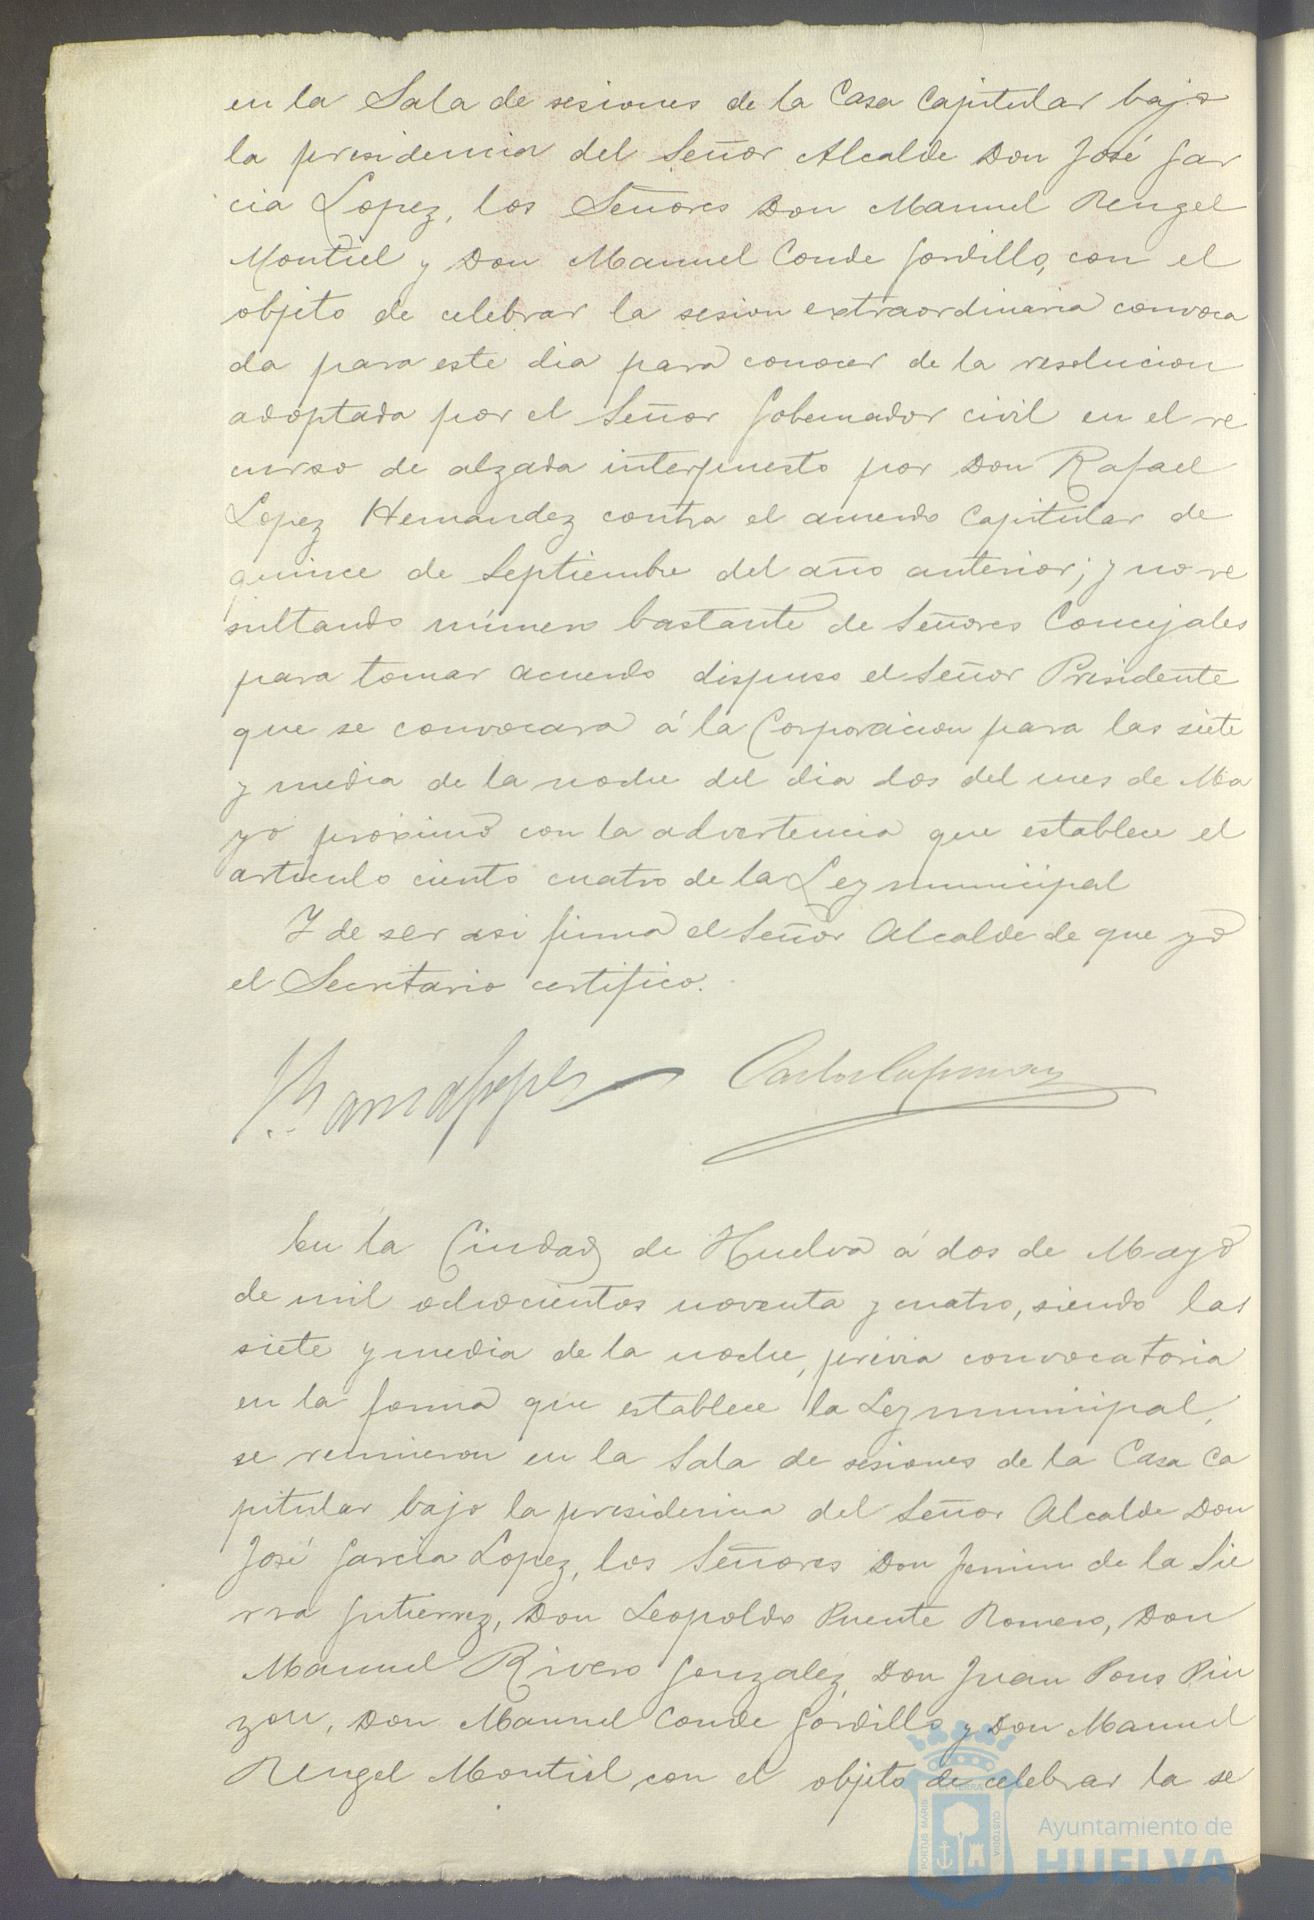 en la Sala de sesiones de la Casa Capitular bajo
la presidencia del Señor Alcalde Don José Gar
cia Lopez, los Señores Don Manuel Rengel
Montiel y Don Manuel Conde Gordillo, con el
objeto de celebrar la sesion extraordinaria convoca
da para este dia para conocer de la resolucion
adoptada por el Señor Gobernador civil en el re
curso de alzada interpuesto por Don Rafael
Lopez Hernandez contra el acuerdo Capitular de
quince de Septiembre del año anterior; y no re
sultando número bastante de Señores Concejales
para tomar acuerdo dispuso el Señor Presidente
que se convocara á la Corporacion para las siete
y media de la noche del dia dos del mes de Ma
yo próximo con la advertencia que establece el
articulo ciento cuatro de la Ley municipal
Y de ser asi firma el Señor Alcalde de que yo
el Secretario certifico.
J. Garcia Lopez
En la Ciudad de Huelva á dos de Mayo
de mil ochocientos noventa y cuatro, siendo las
siete y media de la noche, prévia convocatoria
en la forma que establece la Ley municipal,
se reunieron en la Sala de sesiones de la Casa Ca
pitular bajo la presidencia del Señor Alcalde Don
José Garcia Lopez, los Señores Don de la Sie
rra Gutierrez, Don Leopoldo Puente Romero, Don
Manuel Rivero Gonzalez, Don Juan Pons Pin
zon, Don Manuel Conde Gordillo y Don Manuel
Rengel Montiel con el objeto de celebrar la se
PORTUS MARIS
TERRAE
CUSTODIA
Ayuntamiento de
HUELVA